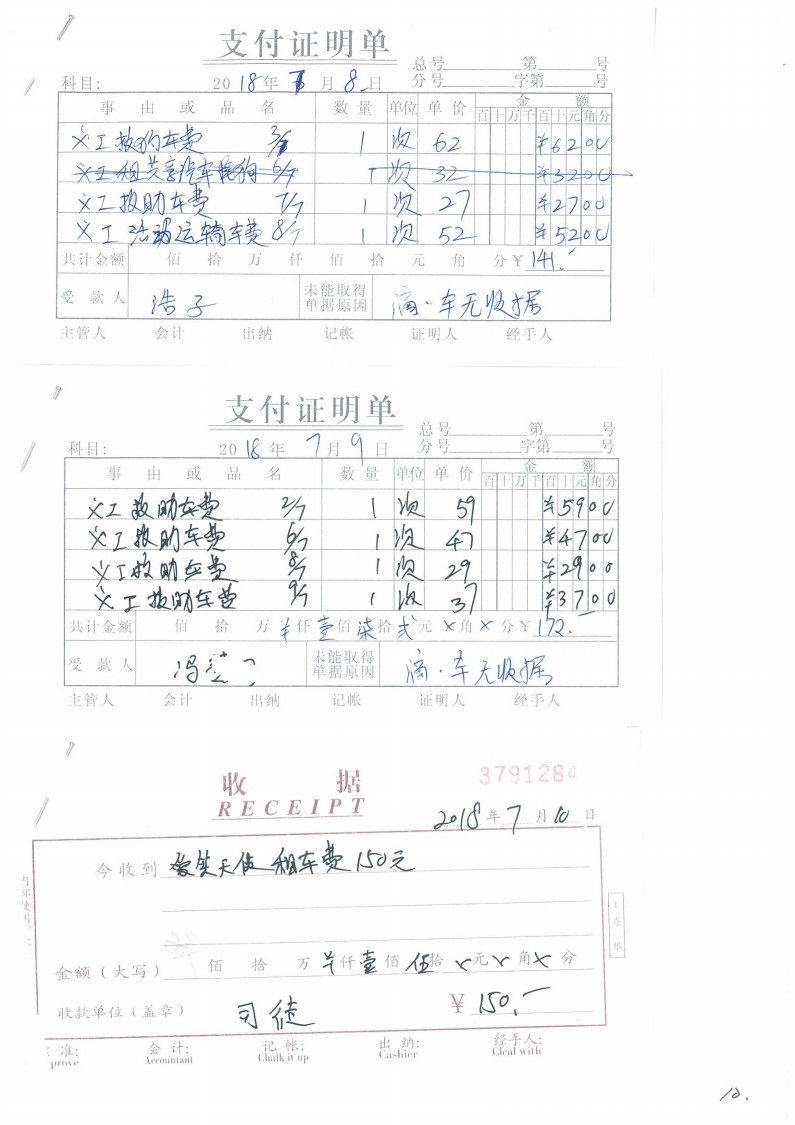 支付证明单
总号 第 号
科目: 2018年 7月 8日 分号 字第 号
事由或品名 数量 单位 单价 金额
百十万千百十元角分
义工救狗车费 3/7 1 次 62 ¥6200
义工租共享汽车 狗 6/7 1 次 32 ¥3200
义工救助车费 7/7 1 次 27 ¥2700
义工活动运输车费 8/7 1 次 52 ¥5200
共计金额 佰 拾 万 仟 佰 拾 元 角 分 ¥141.-
受款人 浩子 未能取得单据原因 滴.车无收据
主管人 会计 出纳 记帐 证明人 经手人
支付证明单
总号 第 号
科目: 2018年 7月 9日 分号 字第 号
事由或品名 数量 单位 单价 金额
百十万千百十元角分
义工救助车费 2/7 1 次 59 ¥5900
义工救助车费 6/7 1 次 47 ¥4700
义工救助车费 8/7 1 次 29 ¥2900
义工救助车费 9/7 1 次 37 ¥3700
共计金额 佰 拾 万 ¥仟壹佰柒拾贰元×角×分 ¥172.-
受款人 冯 未能取得单据原因 滴.车无收据
主管人 会计 出纳 记帐 证明人 经手人
收据 3791284
RECEIPT
2018年7月10日
今收到 爱笑天使 租车费150元
金额(大写) 佰 拾 万 ¥仟壹佰伍拾×元×角×分
收款单位(盖章) 司徒 ¥150.-
准: 会计: 记帐: 出纳: 经手人:
prove Accountant Chalk it up Cashier Cleal with
10.